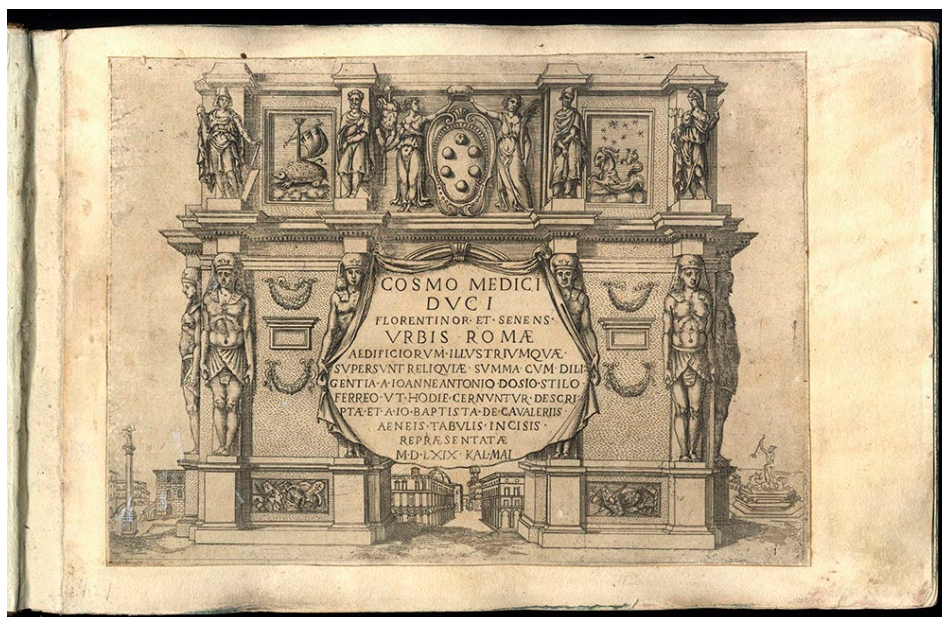 COSMO MEDICI
DVCI
FLORENTINOR· ET· SENENS·
VRBIS· ROMÆ
AEDIFICIORVM·ILLVSTRIVMQVÆ·
SVPERSVNT RELIQVIÆ· SVMMA· CVM· DILI⸗
GENTIA·A·IOANNE ANTONIO·DOSIO·STILO
FERREO·VT·HODIE·CERNVNTVR·DESCRI⸗
PTÆ·ET·A·IO·BAPTISTA·DE·CAVALERIIS·
AENEIS·TABVLIS·INCISIS·
REPRÆSENTATÆ
M·D·LXIX· KAL·MAI